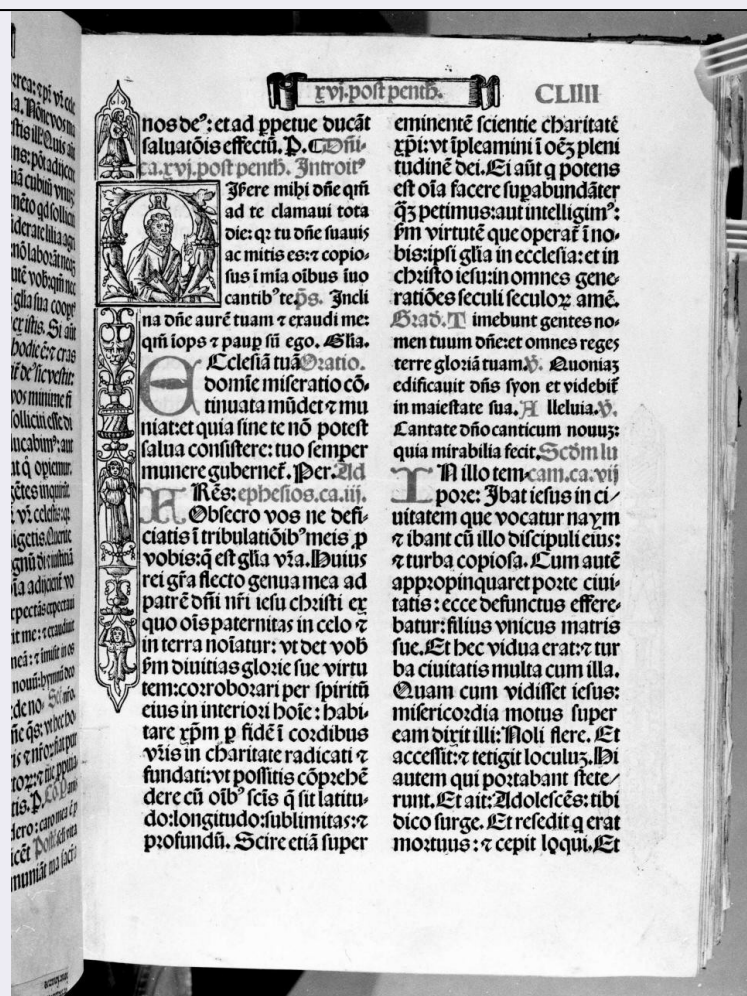 xvj. post penth̄.
CLIIII
nos deꝰ: et ad ꝑpetue ducāt
saluatōis effectū. P. ⁋ Dn̄i-
ca. xvj. post penth̄. Introitꝰ
Isere mihi dn̄e qm̄
ad te clamaui tota
die: qꝛ tu dn̄e suauis
ac mitis es: ⁊ copio-
sus ī mīa oībus īuo
cantibꝰ te. p̄s. Incli
na dn̄e aurē tuam ⁊ exaudi me:
qm̄ īops ⁊ paup sū ego. Glīa.
ECclesiā tuā Oratio.
domīe miseratio cō-
tinuata mūdet ⁊ mu
niat: et quia sine te nō potest
salua consistere: tuo semper
munere gubernet᷑. Per. Ad
FRēs: ephesios. ca. iij.
Obsecro vos ne defi-
ciatis ī tribulatiōibꝰ meis ꝓ
vobis: q̄ est glīa vr̄a. Huius
rei gr̄a flecto genua mea ad
patrē dn̄i nr̄i iesu christi ex
quo oīs paternitas in celo ⁊
in terra noīatur: vt det vob̄
ẜm diuitias glorie sue virtu
tem: corroborari per spiritū
eius in interiori hoīe: habi-
tare xp̄m ꝑ fidē ī cordibus
vr̄is in charitate radicati ⁊
fundati: vt possitis cōprehē
dere cū oīb̄ scīs q̄ sit latitu-
do: longitudo: sublimitas: ⁊
profundū. Scire etiā super
eminentē scientie charitatē
xp̄i: vt īpleamini ī oēꝫ pleni
tudinē dei. Ei aūt q potens
est oīa facere suꝑabundāter
q̄ꝫ petimus: aut intelligimꝰ:
ẜm virtutē que operat᷑ ī no-
bis: ipsi glīa in ecclesia: et in
christo iesu: in omnes gene-
ratiōes seculi seculoꝝ amē.
Grad. Timebunt gentes no-
men tuum dn̄e: et omnes reges
terre gloriā tuam. ℣. Quoniaꝫ
edificauit dn̄s syon et videbit᷑
in maiestate sua. Alleluia. ℣.
Cantate dn̄o canticum nouuꝫ:
quia mirabilia fecit. Scd̄m lu
IN illo tem- cam. ca. vij
pore: Ibat iesus in ci-
uitatem que vocatur naym
⁊ ibant cū illo discipuli eius:
⁊ turba copiosa. Cum autē
appropinquaret porte ciui-
tatis: ecce defunctus effere-
batur: filius vnicus matris
sue. Et hec vidua erat: ⁊ tur
ba ciuitatis multa cum illa.
Quam cum vidisset iesus:
misericordia motus super
eam dixit illi: Noli flere. Et
accessit: ⁊ tetigit loculuꝫ. Hi
autem qui portabant stete-
runt. Et ait: Adolescēs: tibi
dico surge. Et resedit q erat
mortuus: ⁊ cepit loqui. Et